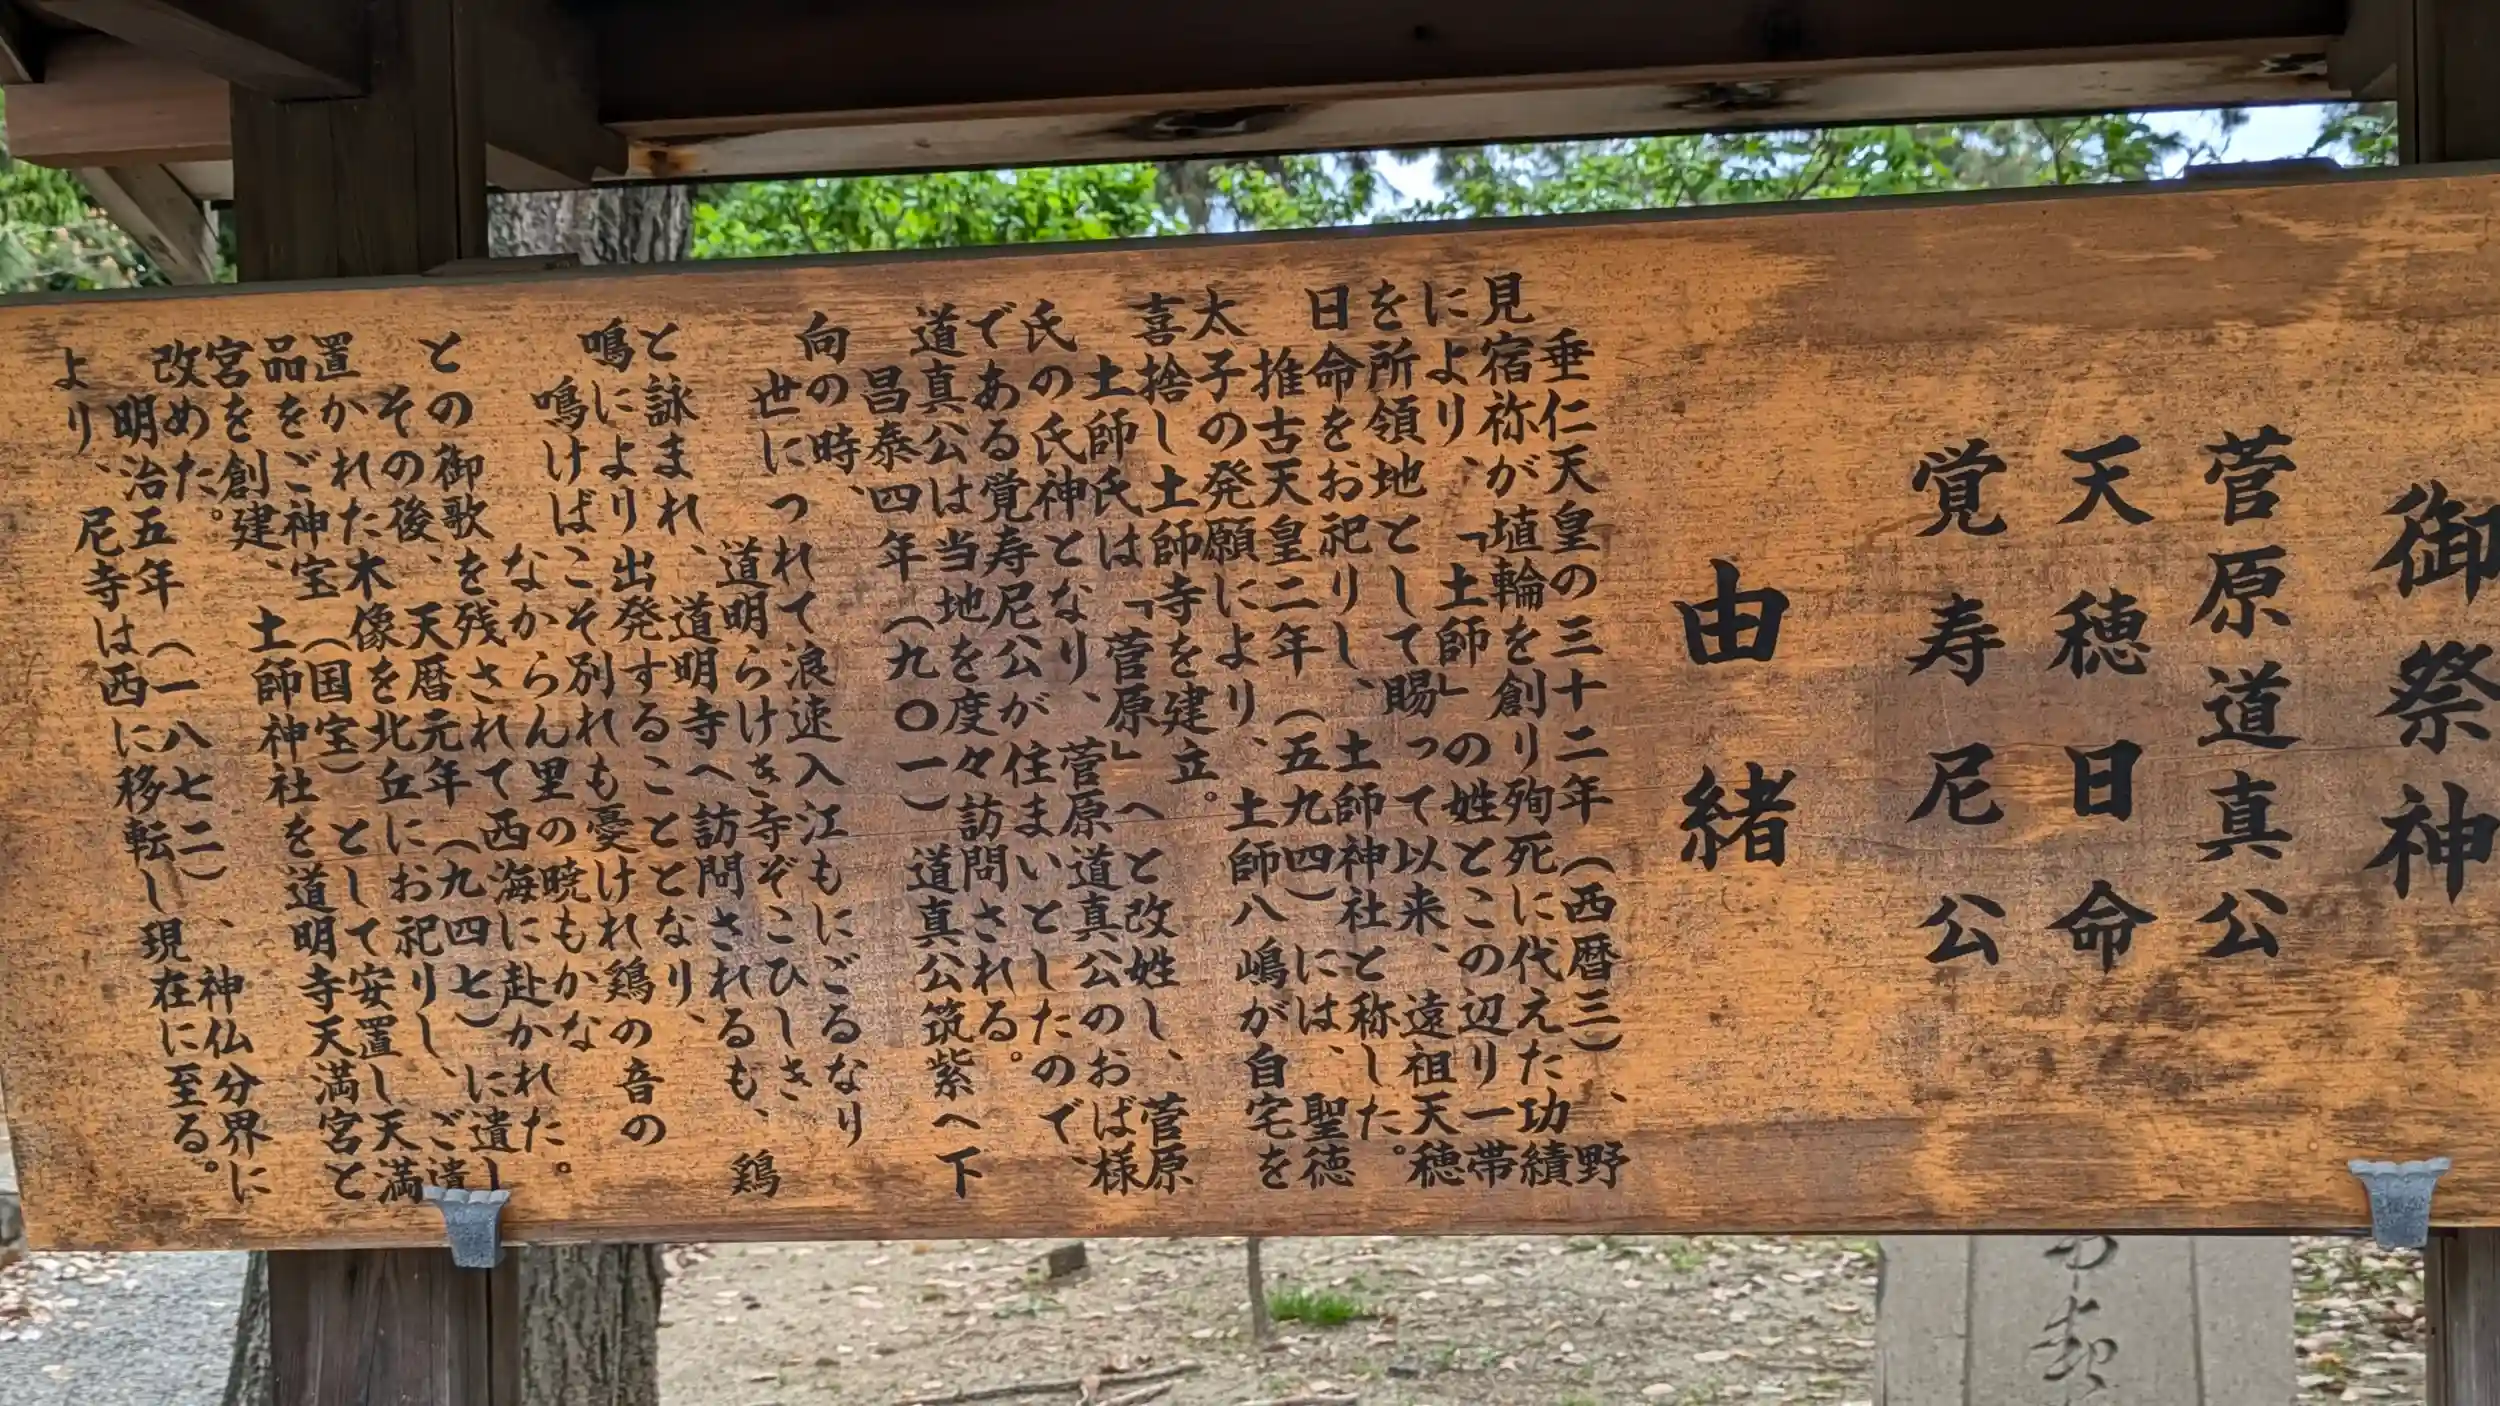 御祭神
菅原道真公
天穂日命
覚寿尼公
由緒
垂仁天皇の三十二年（西暦三）、野
見宿祢が埴輪を創り殉死に代えた功績
により、「土師」の姓とこの辺り一帯
を所領地として賜って以来、遠祖天穂
日命をお祀りし、土師神社と称した。
推古天皇二年（五九四）には、聖徳
太子の発願により、土師八嶋が自宅を
喜捨し土師寺を建立。
土師氏は「菅原」へと改姓し、菅原
氏の氏神となり、菅原道真公のおば様
である覚寿尼公が住まいとしたので、
道真公は当地を度々訪問される。
昌泰四年（九〇一）道真公筑紫へ下
向の時、
世につれて浪速入江もにごるなり
道明らけき寺ぞこひしき
と詠まれ、道明寺へ訪問されるも、鶏
鳴により出発することとなり、
鳴けばこそ別れも憂けれ鶏の音の
なからん里の暁もかな
との御歌を残されて西海に赴かれた。
その後、天暦元年（九四七）に遺し
置かれた木像を北丘にお祀りし、ご遺
品をご神宝（国宝）として安置し天満
宮を創建、土師神社を道明寺天満宮と
改めた。
明治五年（一八七二）、神仏分界に
より、尼寺は西に移転し現在に至る。